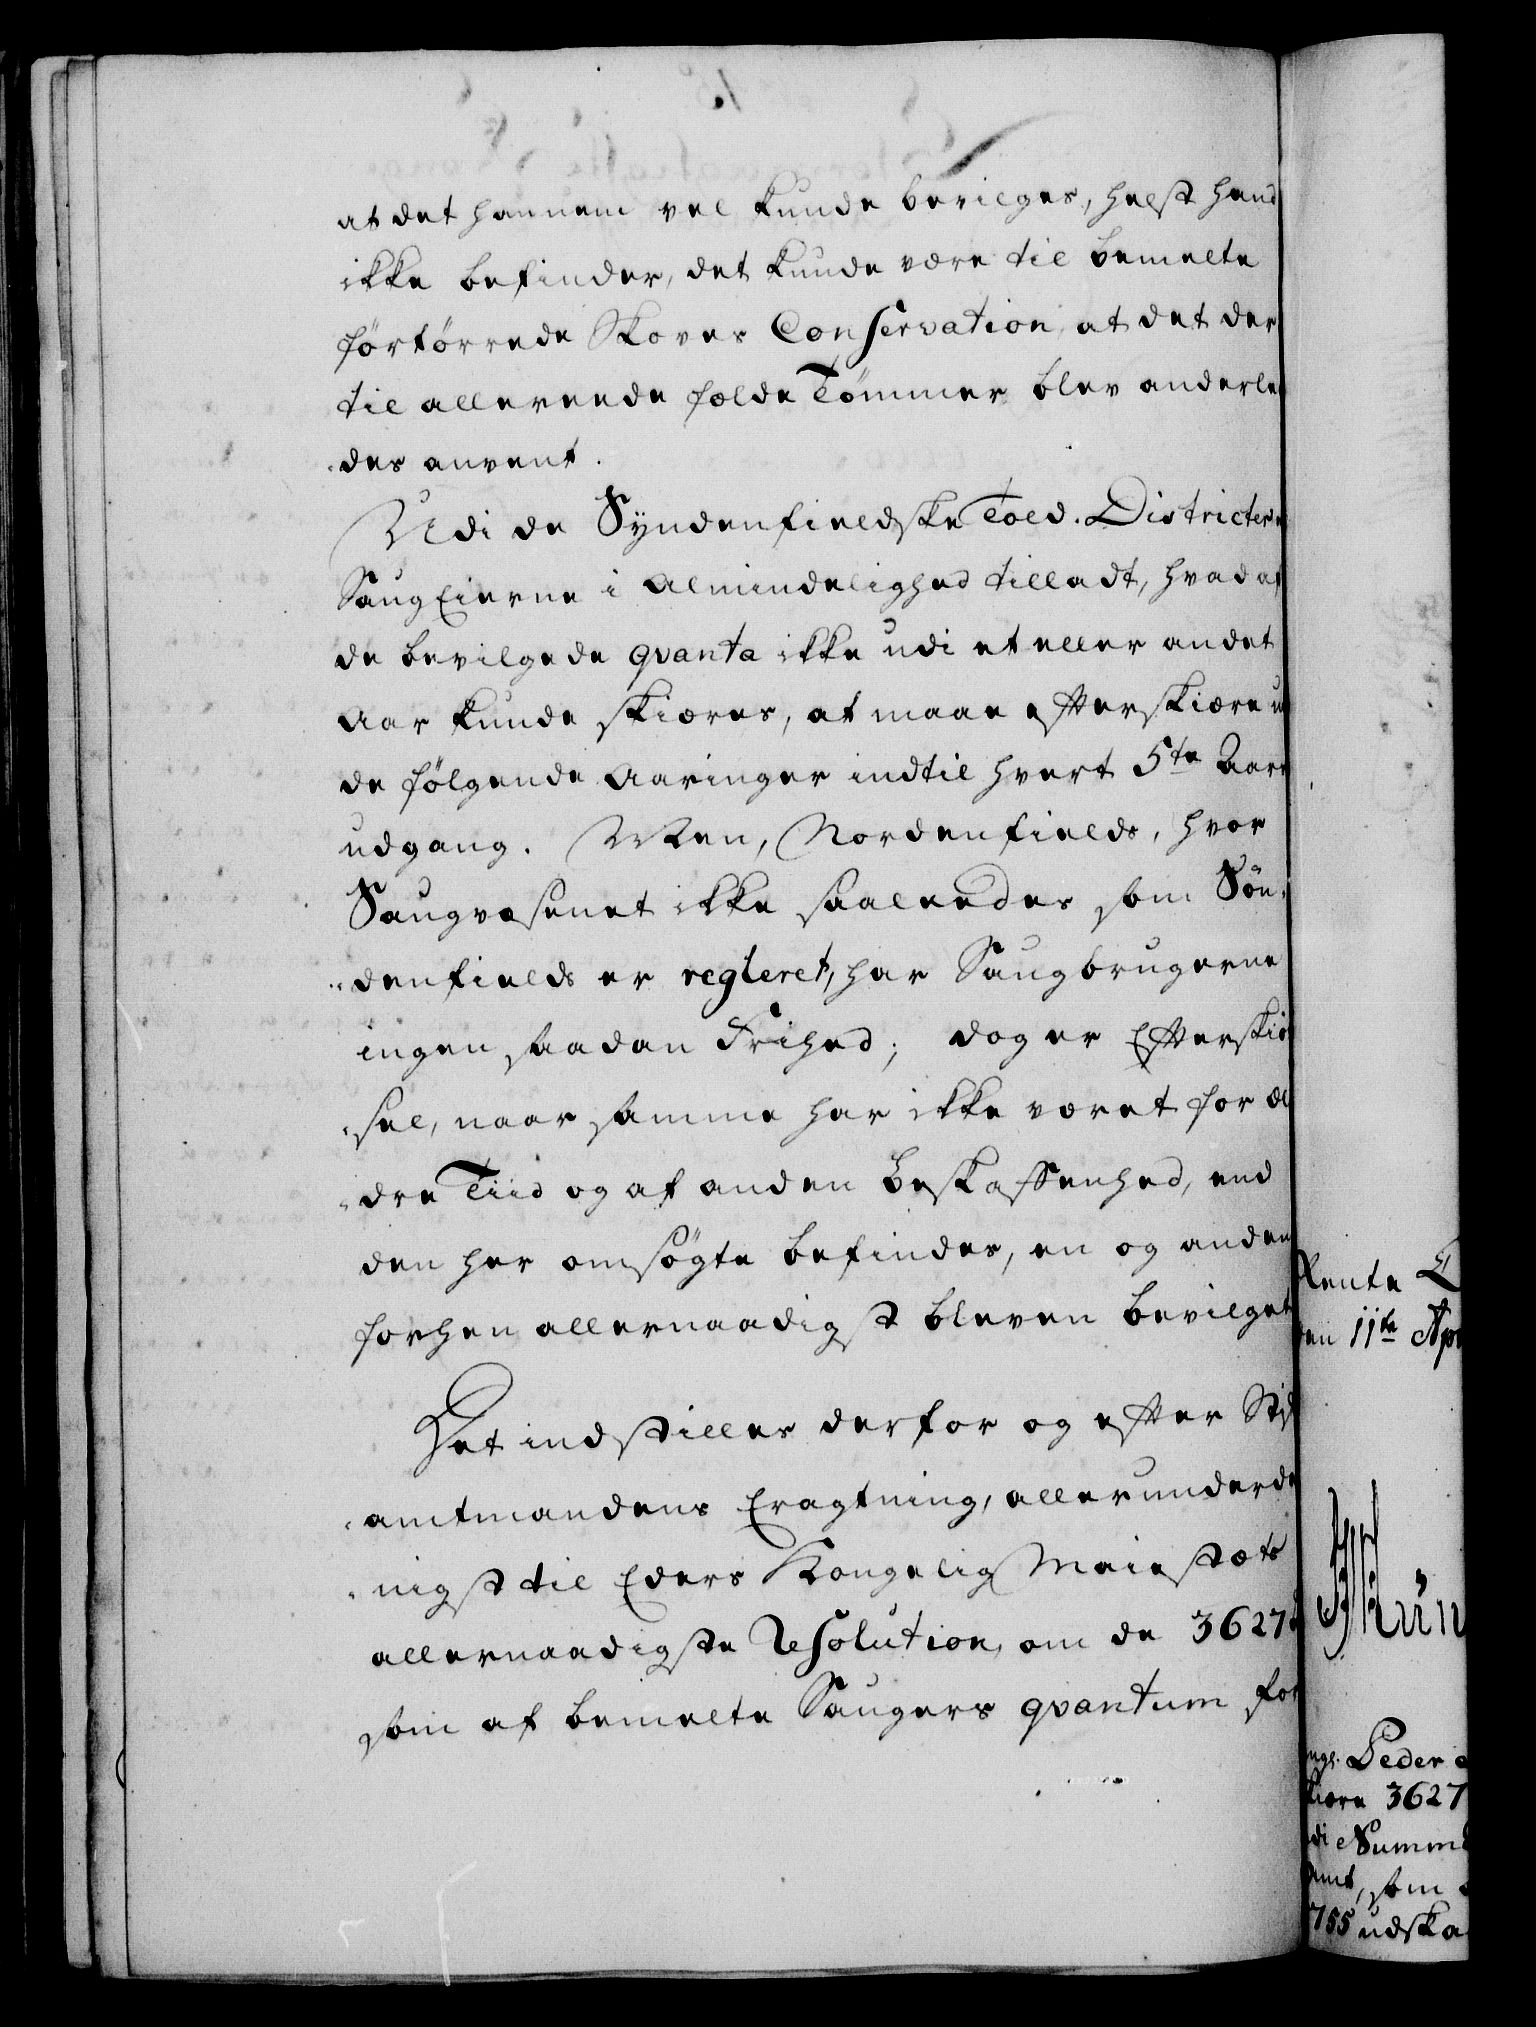 at det hannem vel kunde bevilges, helst hand
ikke befinder, det kunde være til bemelte
förtörrede Skoves Conservation, at det der
til allereede fælde Tömmer blev anderle
des anvent.
Udi de Syndenfieldske Told-Districter
SaugEierne i Almindelighed tilladt, hvad af
de bevilgede qvanta ikke udi et eller andet
Aar kunde skiæres, at maae efterskiære u
de følgende Aaringer indtil hvert 5te Aars
udgang. Men, Nordenfields, hvor
Saugvæsenet ikke saaleedes som Sön-
denfields er regleret, har Saugbrugerne
ingen saadan Frihed; dog er Efterskiæ
sel, naar samme har ikke været for æl
dre Tiid og af anden Beskaffenhed, end
den her omsögte befindes, en og anden
forhen allernaadigst bleven bevilget
Det indstilles derfor og efter Stift
amtmandens Eragtning, allerunderda
nigst til Eders Kongelig Maiestæts
allernaadigste Resolution, om de 3627
som af bemelte Saugers qvantum for
Rente
den 11te Apr
Peder
skiære 3627
udi Numme
Amt, som
1755 udska